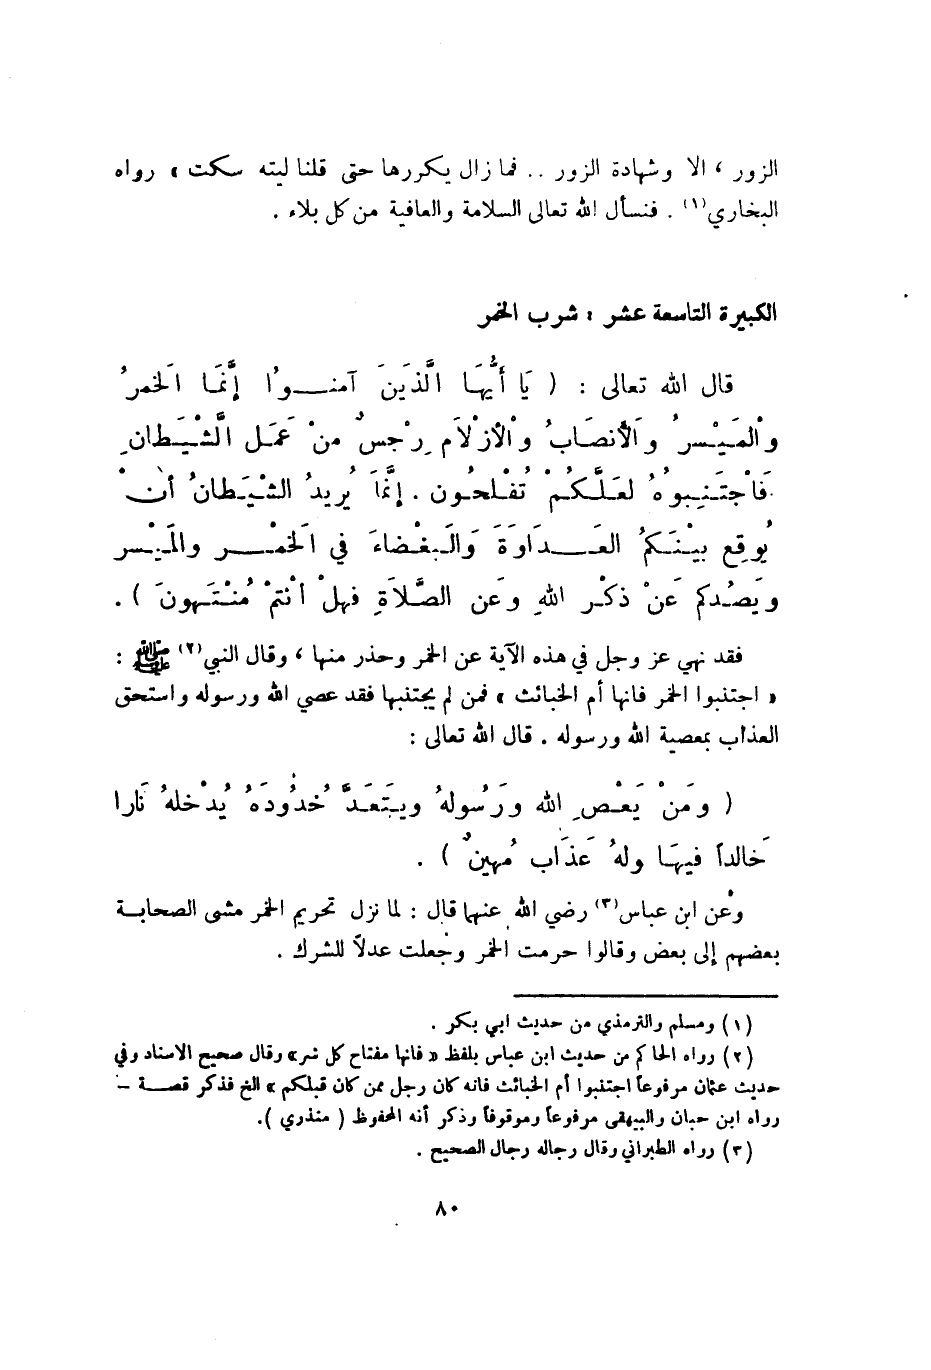 الزور ، الا وشهادة الزور .. فما زال يكررها حتى قلنا ليته سكت » رواه
البخاري(١) . فنسأل الله تعالى السلامة والعافية من كل بلاء .
الكبيرة التاسعة عشر : شرب الخمر
قال الله تعالى : ( يَا أَيُّهَا الَّذِينَ آمنوُا إنَّمَا الَخمرُ
وْالمَيْسرُ وَالأنصَابُ وْالأزْلَام ِرْجسٌ منْ عَمَل الشَّيْطانِ
فَاْجتَنِبوُهُ لعَلَّكُمْ تُفْلحُون . إنَّمَا يُريدُ الشْيَطانُ أنْ
يُوقِع بيْنَكمُ العَداوَةَ وَالَبغْضاءَ في الَخمْر والَميْسر
ويَصُدكم عَنْ ذكْر اللهِ وعَن الصَّلاَةِ فهلْ أنْتمْ مُنْتَهونَ ) .
فقد نهي عز وجل في هذه الآية عن الخمر وحذر منها ، وقال النبي(٢) ﷺ :
« اجتنبوا الخمر فانها أم الخبائث » فمن لم يجتنبها فقد عصي الله ورسوله واستحق
العذاب بمعصية الله ورسوله . قال الله تعالى :
( ومَنْ يَعْصِ الله ورَسُولهُ ويتَعَدَّ حُدُودَهُ يُدْخلهُ نَارا
خَالداً فيهَا ولهُ عَذَاب مُهينٌ ) .
وعن ابن عباس(٣) رضي الله عنهما قال : لما نزل تحريم الخمر مشى الصحابة
بعضهم إلى بعض وقالوا حرمت الخمر وجُعلت عدلاً للشرك .
(١) ومسلم والترمذي من حديث ابي بكر .
(٢) رواه الحاكم من حديث ابن عباس بلفظ « فانها مفتاح كل شر» وقال صحيح الاسناد وفي
حديث عثمان مرفوعاً اجتنبوا أم الخبائث فانه كان رجل ممن كان قبلكم » الخ فذكر قصة –
رواه ابن حبان والبيهقى مرفوعاً وموقوفاً وذكر أنه المحفوظ ( منذري ).
(٣) رواه الطبراني وقال رجاله رجال الصحيح .
٨٠